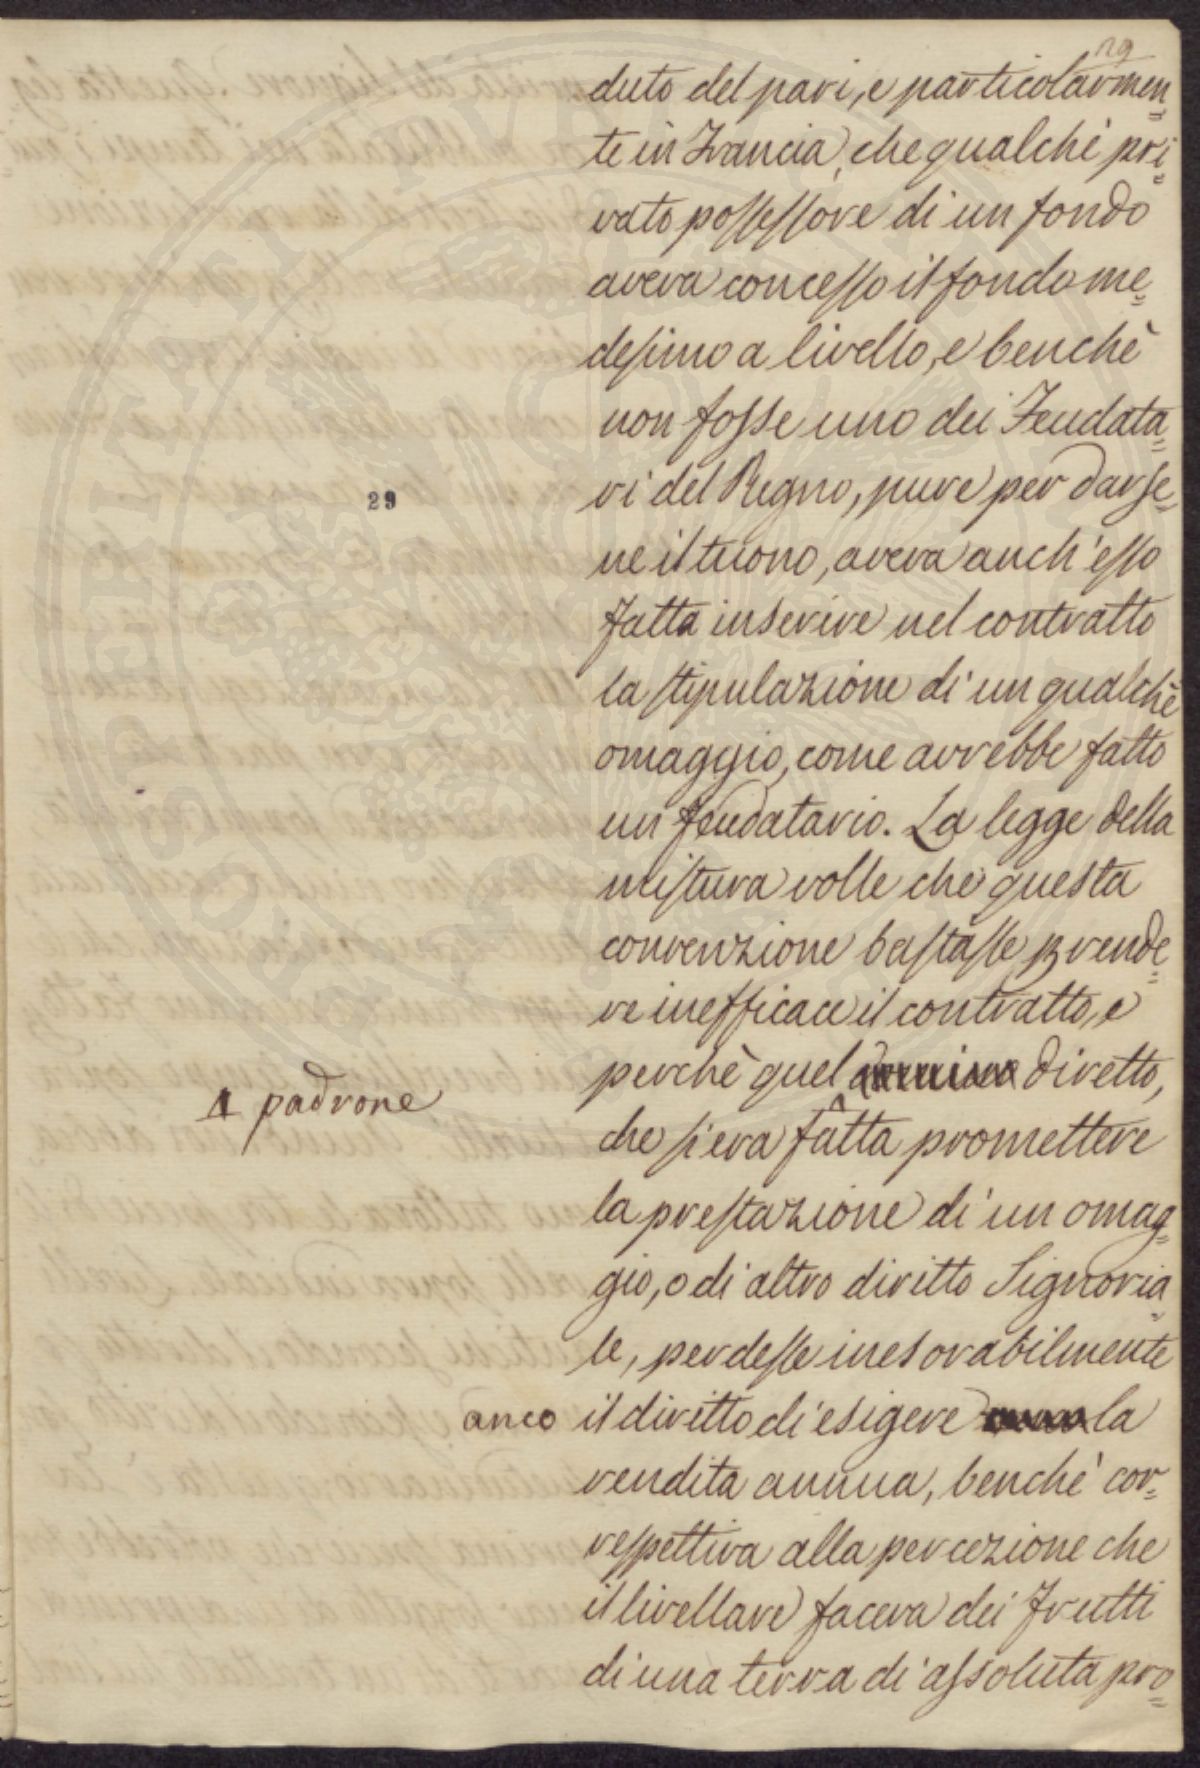 29
duto del pari, e particolarmen=
te in Francia, che qualche pri=
vato possessore di un fondo
aveva concesso il fondo me=
desimo a livello, e benchè
non fosse uno dei Feudata=
ri del Regno, pure per darse=
29
ne il tuono, aveva anch'esso
fatta inserire nel contratto
la stipulazione di un qualche
omaggio, come avrebbe fatto
un feudatario. La legge della
mistura volle che questa
convenzione bastasse p rende=
re inefficace il contratto, e
perchè quel diretto,
padrone
che si era fatta promettere
la prestazione di un omag=
gio, o di altro diritto Signoria=
le, perdesse inesorabilmente
anco il diritto di esigere la
rendita annua, benchè cor=
respettiva alla percezione che
il livellare faceva dei frutti
di una terra di assoluta pro=